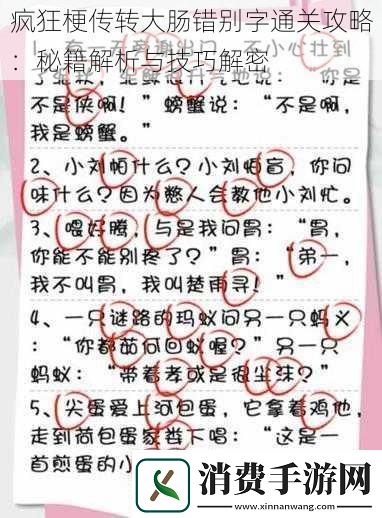 疯狂梗传转大肠错别字通关攻略
：秘籍解析与技巧解密
谢出门，不小心壮到
不是侠啊！”螃蟹说：“不是啊，
我是螃蟹。”
2、小刘帕什么？小刘帕盲，你问
味什么？因为憋人会教他小刘忙。
3、喂好腾，与是我问胃：“胃，
你能不能别疼了？”胃：“弟一，
我不叫胃，我叫楚雨寻！”
4、一只谜路的玛蚁问另一只蚂义
：“你都茹何回蚁喔？”另一只
蚂蚁：“带着孝或是很尘沫？”
5、尖蛋爱上河包蛋，它拿着鸡他，
走到荷包蛋家娄下唱：“这是一
首煎蛋的小
消费手游网
www.xinnanwang.com